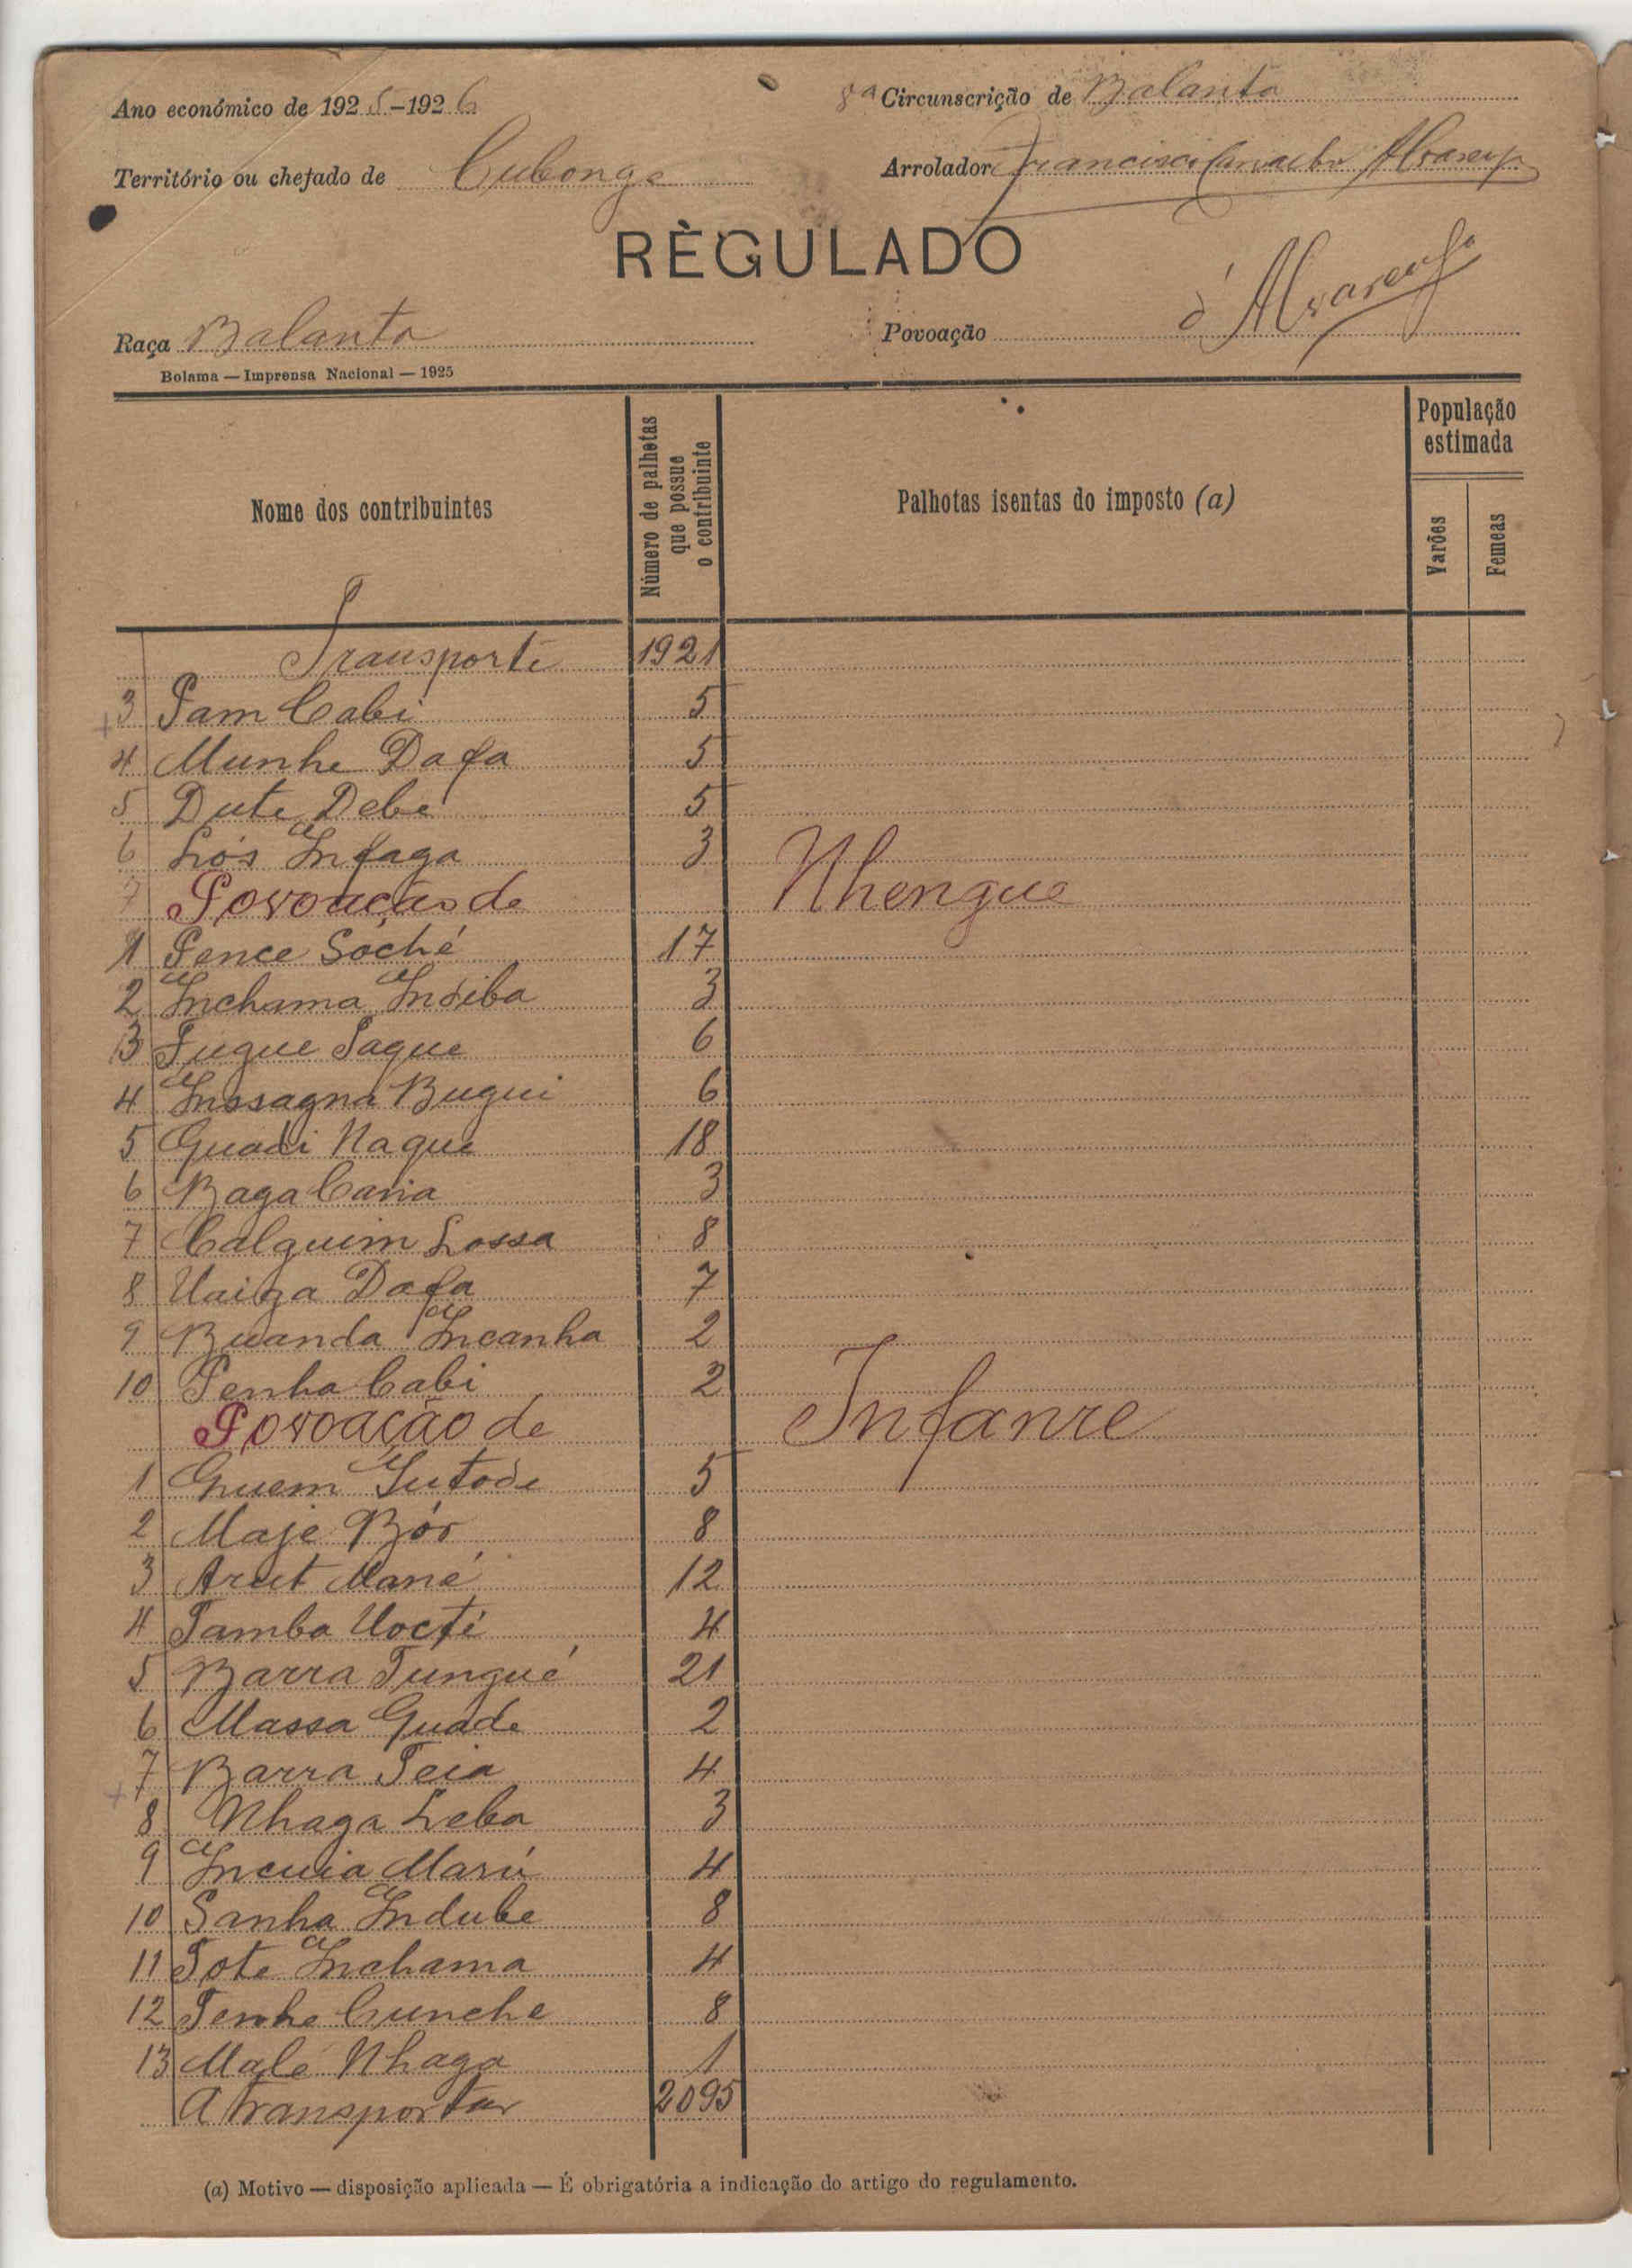 Ano económico de 1925-1926
8ª Circunscrição de Balanta
Território ou chefado de Cubonge
Arrolador Francisco Carvalho Alvarenga
RÈGULADO
d'Alvarenga
Raça Balanta
Povoação
Bolama — Imprensa Nacional — 1925
Nome dos contribuintes
Número de palhotas que possue o contribuinte
Palhotas isentas do imposto (a)
População estimada
Varões
Femeas
Transporte 1921
3 Pam Cabi 5
4 Munhe Dafa 5
5 Dute Debe 5
6 Lós Infaga 3
7 Povoação de Nhengue
1 Pence Sóché 17
2 Inchama Insiba 3
3 Fugue Paque 6
4 Inssagna Bugui 6
5 Guadi Naque 18
6 Baga Cana 3
7 Calquim Lossa 8
8 Uaiga Dafa 7
9 Buanda Incanha 2
10 Penha Cabi 2
Povoação de Infanre
1 Gnuem Iutode 5
2 Maje Bór 8
3 Arut Mané 12
4 Tamba Uocti 4
5 Barra Tungué 21
6 Massa Guade 2
7 Barra Teia 4
8 Nhaga Leba 3
9 Incuia Marú 4
10 Sanha Indube 8
11 Tote Inchama 4
12 Tenhe Cunche 8
13 Malé Nhaga 1
A transportar 2095
(a) Motivo — disposição aplicada — É obrigatória a indicação do artigo do regulamento.